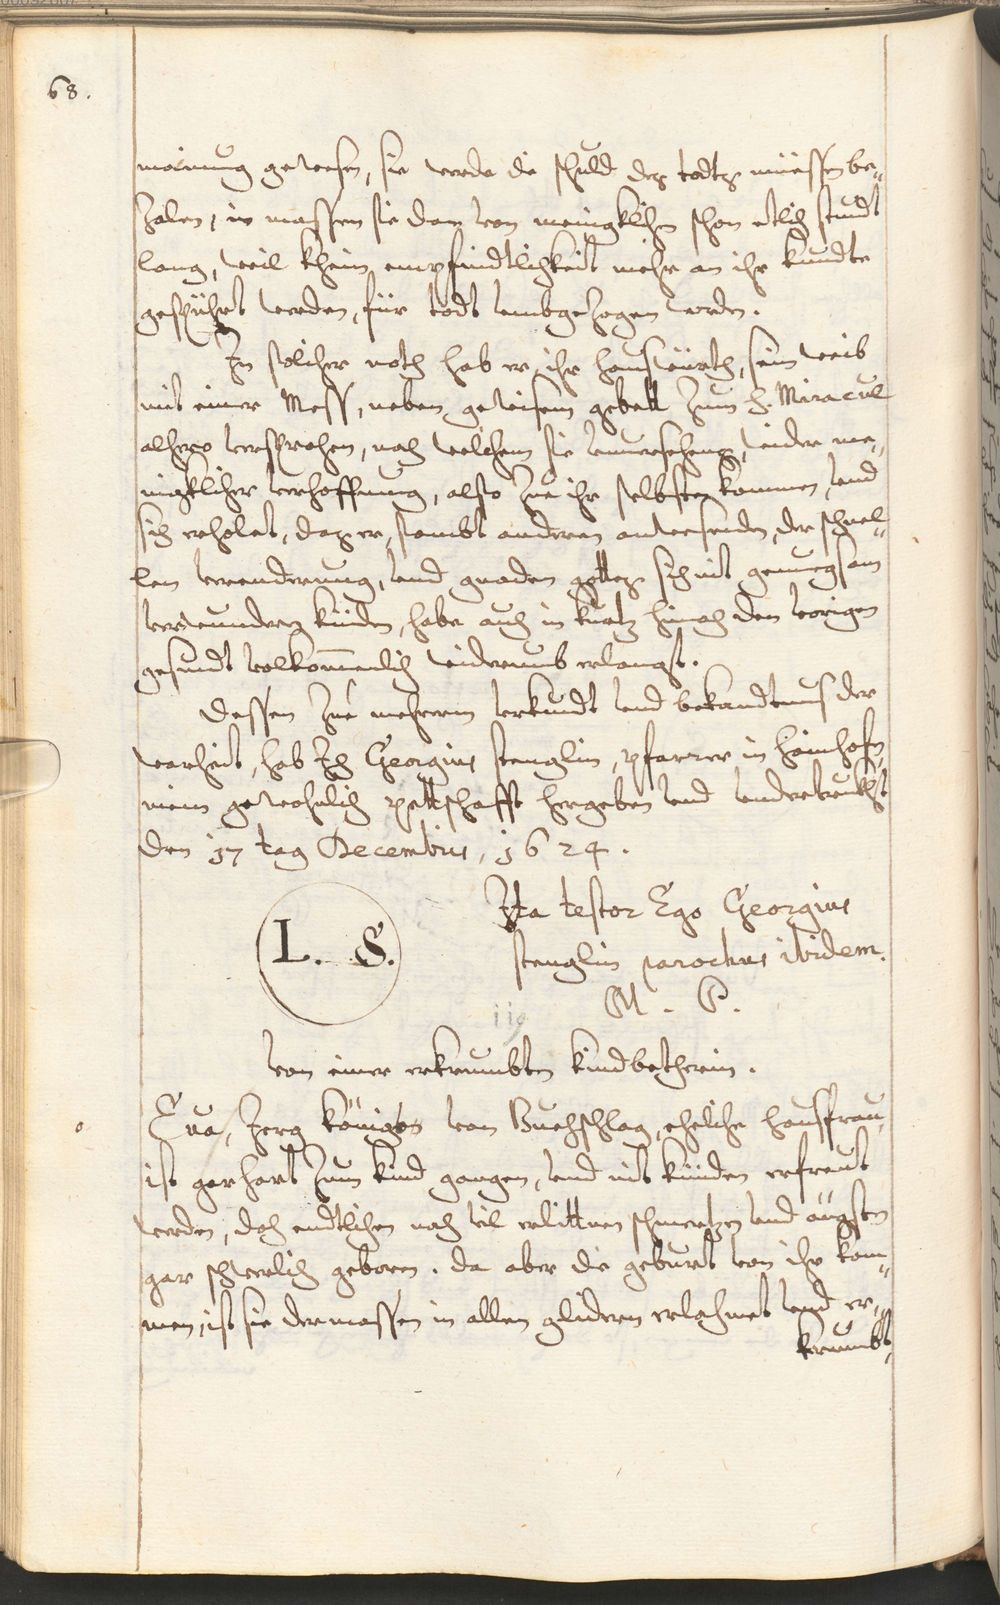 68.
mainung gewesen, sie werde die schuld deß todtß müessen be„
zalen, in massen sie dan von meingklich schon etlich stundt
lang, weil khein empfindtlichkeit mehr an ihr kundte
gespührt werden, für todt umbgezogen worden.
In solcher noth hab er ihr hauswürth, sein weib
mit einer Mess, neben gewisem gebett zum H. Miracul
alhero versprochen, nach welchem sie unversehens, wider me„
nigklicher verhoffnung, also zue ihr selbsten kommen, und
sich erholet, daß er, sambt anderen anwesenden, der schnel„
len verenderung, und gnaden gottes sich nit genuegsam
verwundern künden, habe auch in kurtz hinach den vorigen
gesundt volkommenlich widerumb erlangt.
Dessen zue mehrerm urkundt und bekandtnus der
warheit, hab Ich Georgius stenglin, pfarrer in Hainhofen,
mein gewohnlich pettschafft hergeben und undertrukht
den 17 tag Decembris, 1624.
L. S.
Ita testor Ego Georgius
stenglin parochus ibidem.
M. P.
119
Von einer erkrumbten kindbetherin.
Eua, Jerg Königs von Buechschlag, eheliche hausfrau,
ist gar hart zum kind gangen, und nit künden erfreut
werden, doch endtlichen nach vil erlittnen schmertzen und ängsten
gar schwerlich geboren. Da aber die geburt von ihr kom„
men, ist sie dermassen in allen glidern erlahmet und er„
krumbt,